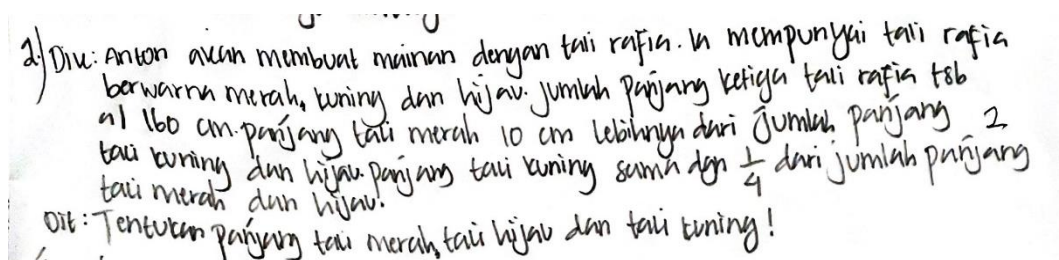 2.) Dik: Anton akan membuat mainan dengan tali rafia. Ia mempunyai tali rafia
berwarna merah, kuning dan hijau. Jumlah panjang ketiga tali rafia tsb
al 160 cm. panjang tali merah 10 cm lebihnya dari jumlah panjang 2
tali kuning dan hijau. panjang tali kuning sama dgn 1/4 dari jumlah panjang
tali merah dan hijau!
Dit: Tentukan panjang tali merah, tali hijau dan tali kuning!